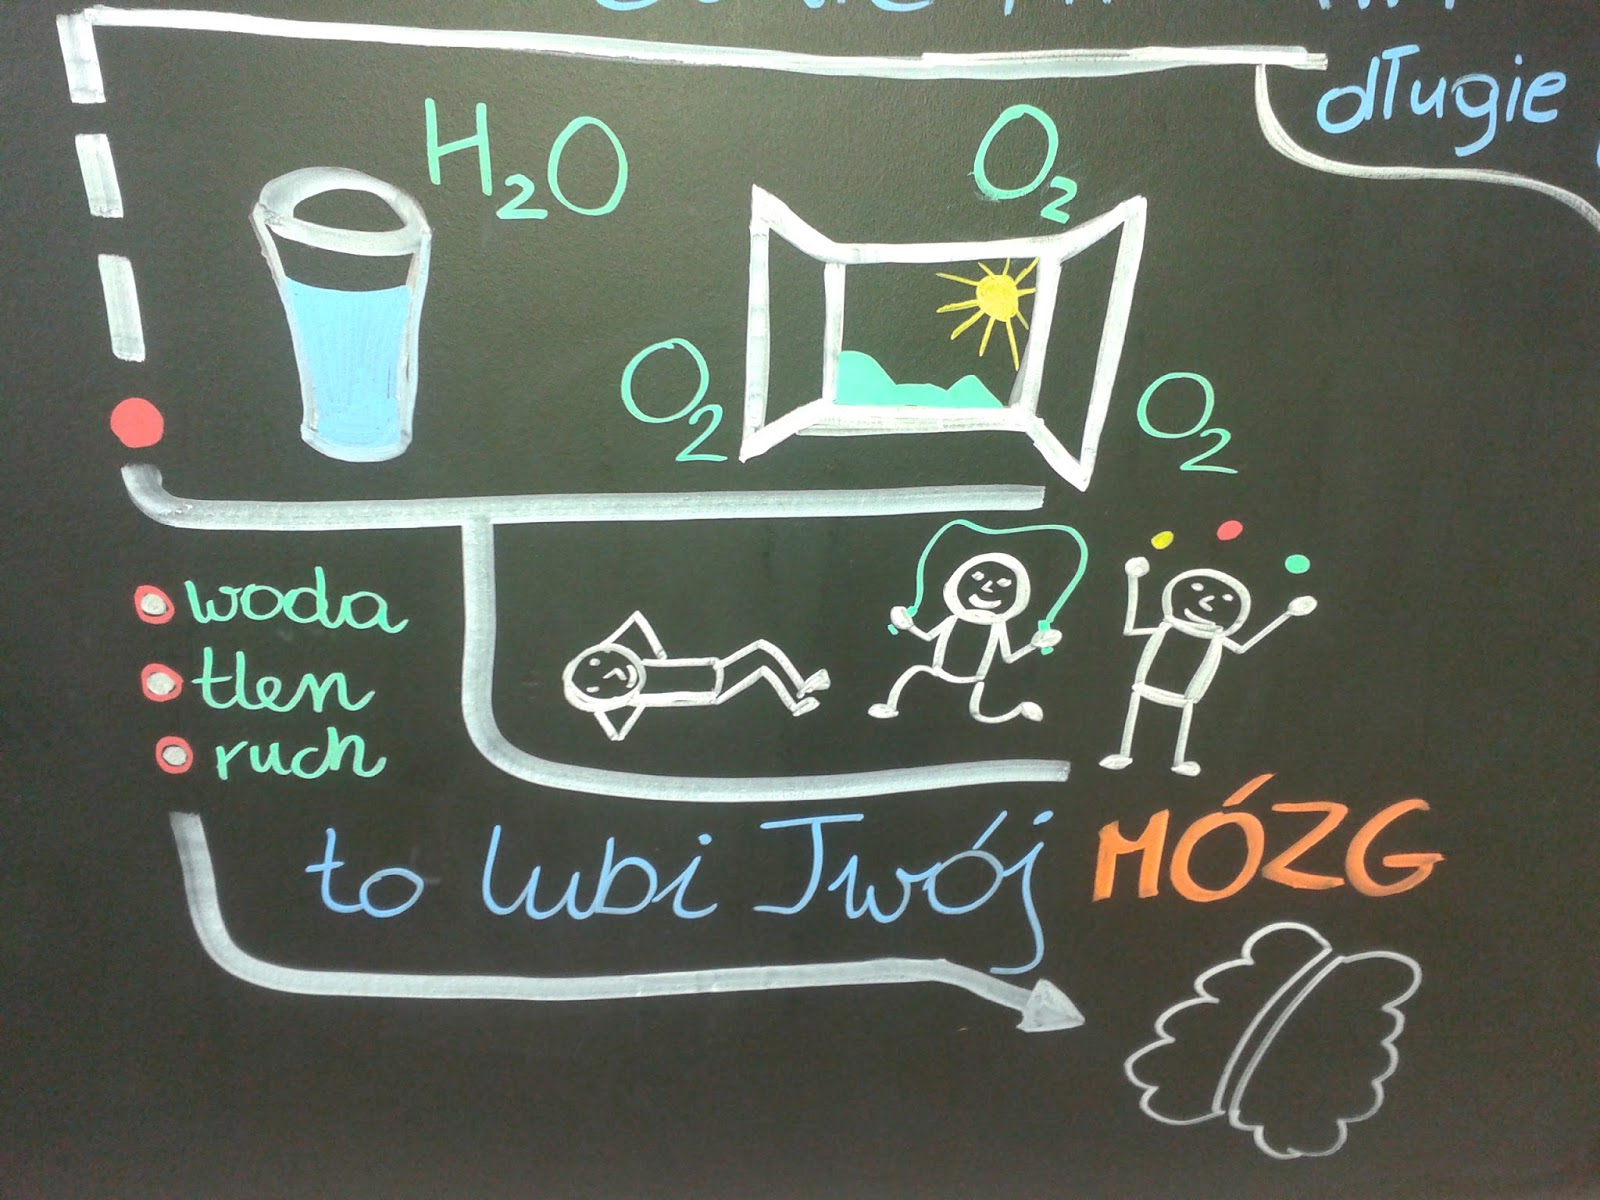 długie
H₂O
O₂
O₂
O₂
woda
tlen
ruch
to lubi Twój MÓZG